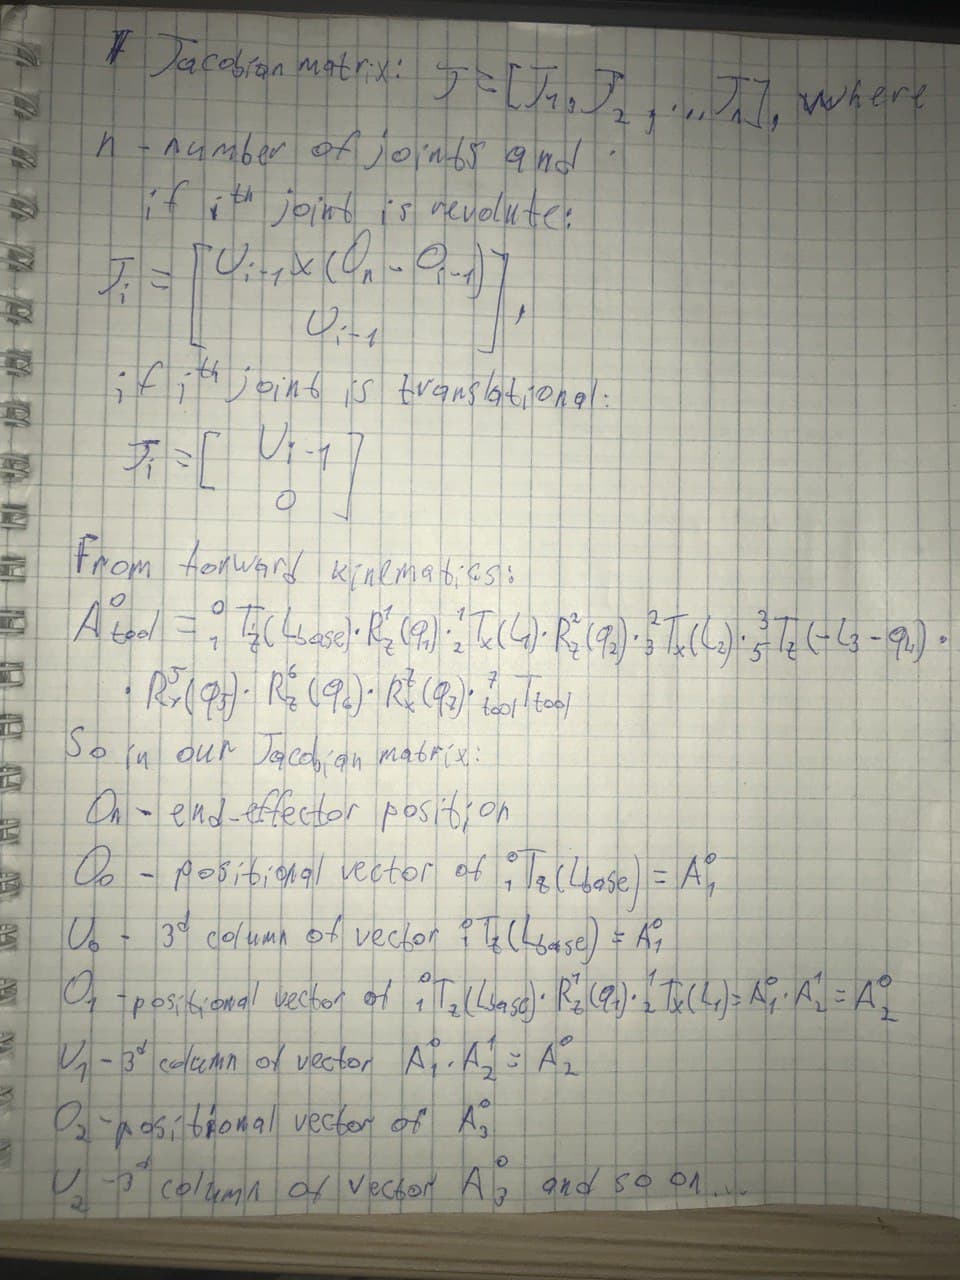 Jacobian matrix: J = [J₁, J₂, ... Jₙ], where
n - number of joints and
if iᵗʰ joint is revolute:
Jᵢ = [Uᵢ₋₁ × (Oₙ - Oᵢ₋₁)
Uᵢ₋₁],
if iᵗʰ joint is translational:
Jᵢ = [Uᵢ₋₁
0]
From forward kinematics:
A⁰_tool = ⁰₁T_z(L_base) · R¹_z(q₁) · ¹₂T_x(L₁) · R²_z(q₂) · ²₃T_x(L₂) · ³₅T_z(-L₃ - q₄) ·
· R⁵_x(q₅) · R⁶_z(q₆) · R⁷_x(q₇) · ⁷_tool T_tool
So in our Jacobian matrix:
Oₙ - end-effector position
O₀ - positional vector of ⁰₁T_z(L_base) = A⁰₁
U₀ - 3ᵈ column of vector ⁰₁T_z(L_base) = A⁰₁
O₁ - positional vector of ⁰₁T_z(L_base) · R¹_z(q₁) · ¹₂T_x(L₁) = A⁰₁ · A¹₂ = A⁰₂
U₁ - 3ᵈ column of vector A⁰₁ · A¹₂ = A⁰₂
O₂ - positional vector of A⁰₃
U₂ - 3ᵈ column of vector A⁰₃ and so on...